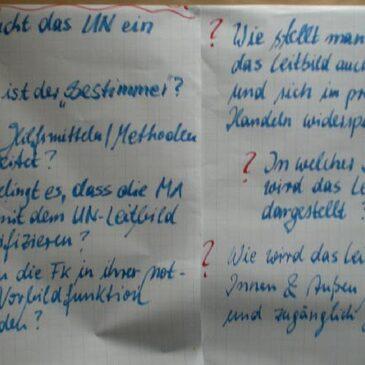 ucht das UN ein
ist der „Bestimmer"?
Hilfsmitteln/Methoden
eitet?
elingt es, dass die MA
mit dem UN-Leitbild
ifizieren?
n die Fk in ihrer not-
Vorbildfunktion
den?
? Wie stellt man
das Leitbild auc
und sich im pr
Handeln widersp
? In welcher
wird das Le
dargestellt?
? Wie wird das Lei
Innen & Außen
und zugänglich